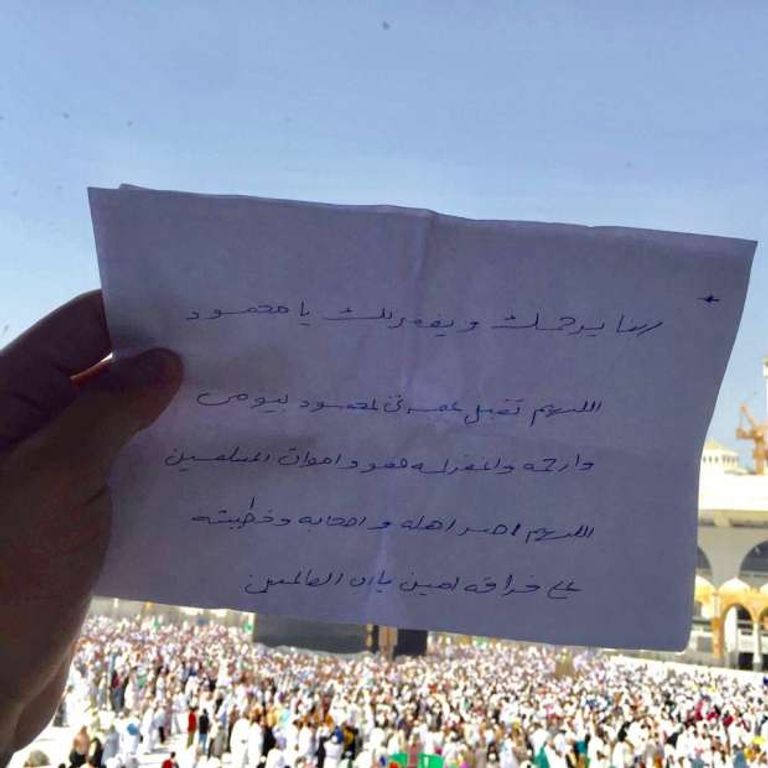 ربنا يرحمك ويغفرلك يا محمود
اللهم تقبل عمرتي لمحمود بيومى
وارحمه واغفرله هو واموات المسلمين
اللهم اصبر اهله واصحابه وخطيبته
على فراقه امين يارب العالمين